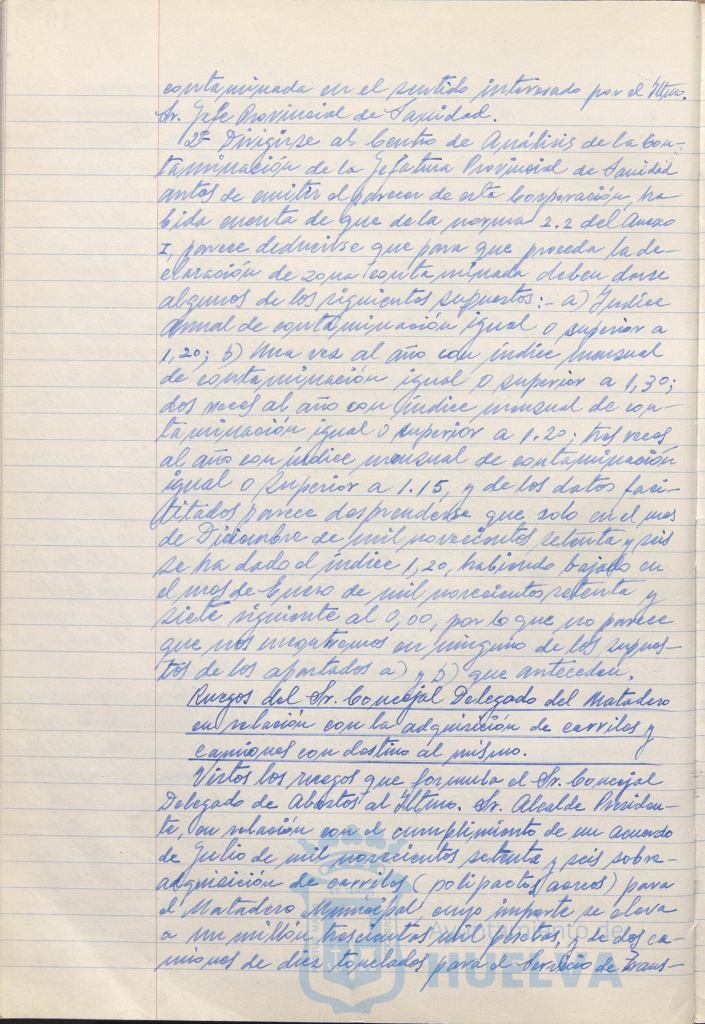 contaminada en el sentido interesado por el Iltmo.
Sr. Jefe Provincial de Sanidad.
2º Dirigirse al Centro de Análisis de la Con-
taminación de la Jefatura Provincial de Sanidad
antes de emitir el parecer de esta Corporación, ha-
bida cuenta de que de la norma 2.2 del Anexo
I, parece deducirse que para que proceda la de-
claración de zona contaminada deben darse
algunos de los siguientes supuestos: - a) Indice
annal de contaminación igual o superior a
1,20; b) Una vez al año con índice mensual
de contaminación igual o superior a 1,30;
dos veces al año con índice mensual de con-
taminación igual o superior a 1.20; tres veces
al año con índice mensual de contaminación
igual o superior a 1.15, y de los datos faci-
litados parece desprenderse que solo en el mes
de Diciembre de mil novecientos setenta y seis
se ha dado el índice 1,20, habiendo bajado en
el mes de Enero de mil novecientos setenta y
siete siguiente al 0,00, por lo que no parece
que nos encontremos en ninguno de los supues-
tos de los apartados a) y b) que anteceden.
Ruegos del Sr. Concejal Delegado del Matadero
en relación con la adquisición de carriles y
camiones con destino al mismo.
Vistos los ruegos que formula el Sr. Concejal
Delegado de Abastos al Iltmo. Sr. Alcalde Presiden-
te, en relación con el cumplimiento de un acuerdo
de Julio de mil novecientos setenta y seis sobre
adquisición de carriles (polipactos aereos) para
el Matadero Municipal, cuyo importe se eleva
a un millón trescientas mil pesetas, y de dos ca-
miones de diez toneladas para el Servicio de Trans-
Ayuntamiento de
HUELVA